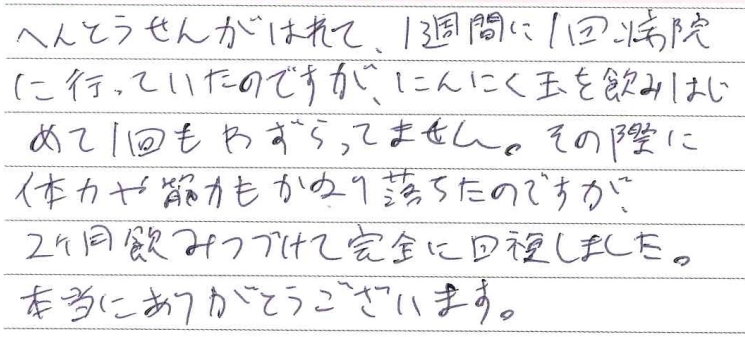 へんとうせんがはれて、1週間に1回病院
に行っていたのですが、にんにく玉を飲みはじ
めて1回もわずらってません。その際に
体力や筋力もかなり落ちたのですが、
2ケ月飲みつづけて完全に回復しました。
本当にありがとうございます。